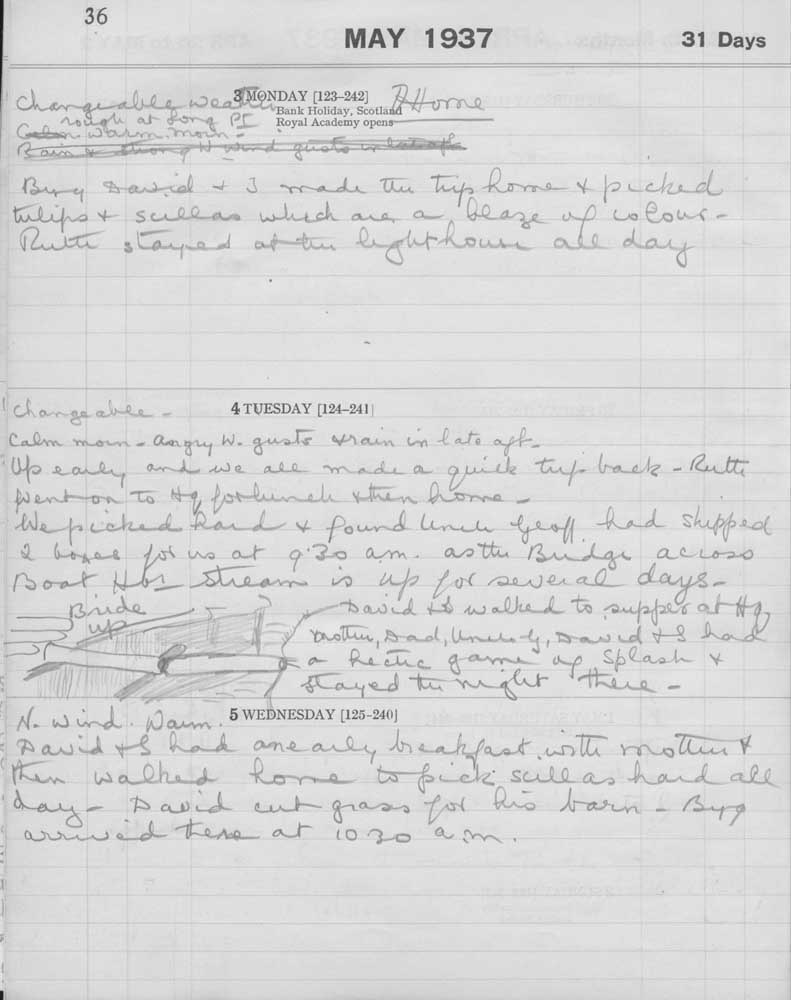 36
MAY 1937
31 Days
3 MONDAY [123–242]
Bank Holiday, Scotland
Royal Academy opens
Home
Changeable weather
rough at Long Pt
Calm warm morn -
Rain & strong W wind gusts in late aft
Byng David & I made the trip home & picked
tulips & scillas which are a blaze of colour -
Ruth stayed at the lighthouse all day
4 TUESDAY [124–241]
Changeable -
Calm morn - Angry W. gusts & rain in late aft -
Up early and we all made a quick trip back - Ruth
went on to Hq for lunch & then home -
We picked hard & found Uncle Geoff had shipped
2 boxes for us at 9.30 a.m. as the Bridge across
Boat Hbr stream is up for several days -
Bride
up
David & I walked to supper at Hq
Mother, Dad, Uncle G, David & I had
a hectic game of Splash &
stayed the night there -
5 WEDNESDAY [125-240]
N. Wind. Warm.
David & I had an early breakfast with mother &
then walked home to pick scillas hard all
day - David cut grass for his barn - Byng
arrived there at 10 30 a.m.